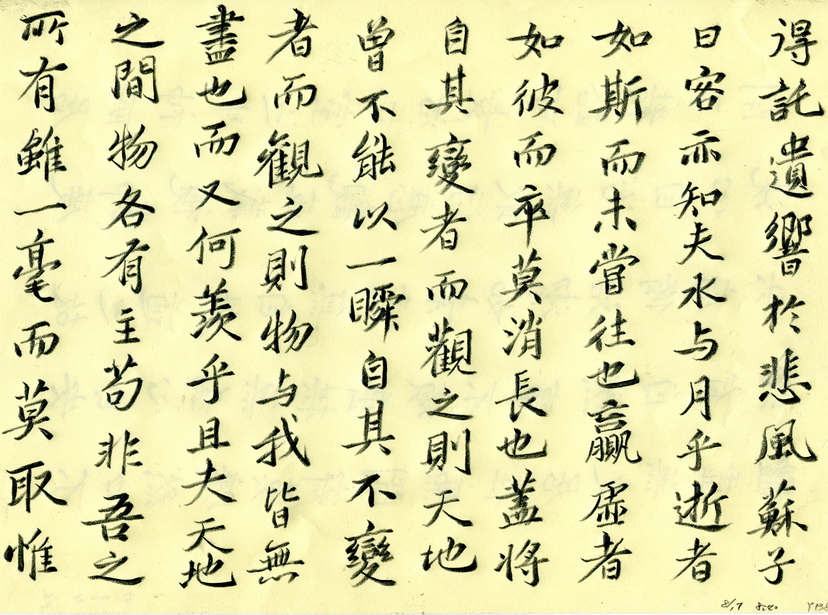 得託遺響於悲風蘇子
曰客亦知夫水与月乎逝者
如斯而未嘗往也贏虛者
如彼而卒莫消長也蓋將
自其變者而觀之則天地
曾不能以一瞬自其不變
者而觀之則物与我皆無
盡也而又何羨乎且夫天地
之間物各有主苟非吾之
所有雖一毫而莫取惟